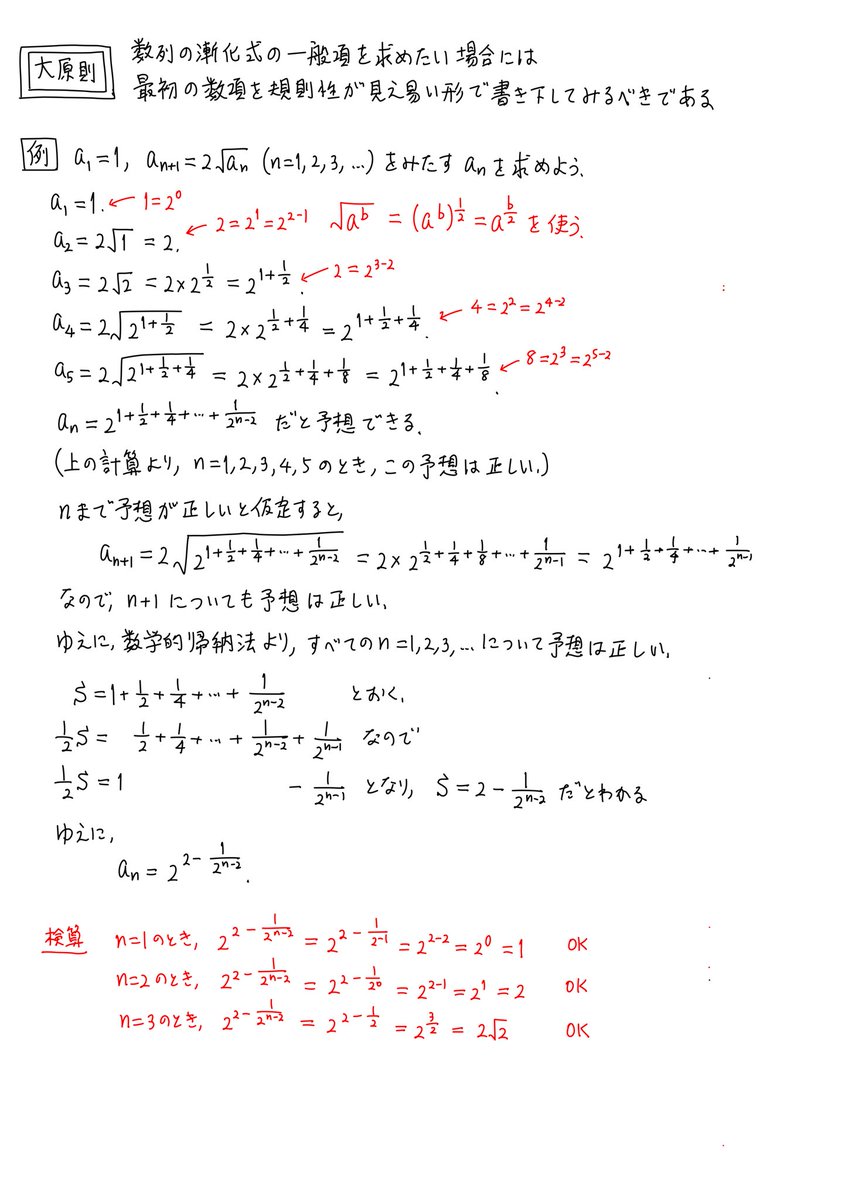 大原則 数列の漸化式の一般項を求めたい場合には
最初の数項を規則性が見え易い形で書き下してみるべきである
例 a₁=1, aₙ₊₁=2√aₙ (n=1,2,3,…) をみたす aₙ を求めよう.
a₁=1. ← 1=2^0
a₂=2√1 =2. ← 2=2^1=2^{2-1} √(a^b) = (a^b)^{1/2} = a^{b/2} を使う.
a₃=2√2 = 2×2^{1/2} = 2^{1+1/2}. ← 2=2^{3-2}
a₄=2√(2^{1+1/2}) = 2×2^{1/2+1/4} = 2^{1+1/2+1/4}. ← 4=2^2=2^{4-2}
a₅=2√(2^{1+1/2+1/4}) = 2×2^{1/2+1/4+1/8} = 2^{1+1/2+1/4+1/8}. ← 8=2^3=2^{5-2}
aₙ=2^{1+1/2+1/4+…+1/2^{n-2}} だと予想できる.
(上の計算より, n=1,2,3,4,5のとき, この予想は正しい.)
nまで予想が正しいと仮定すると,
aₙ₊₁=2√(2^{1+1/2+1/4+…+1/2^{n-2}}) = 2×2^{1/2+1/4+1/8+…+1/2^{n-1}} = 2^{1+1/2+1/4+…+1/2^{n-1}}
なので, n+1についても予想は正しい.
ゆえに, 数学的帰納法より, すべてのn=1,2,3,…について予想は正しい.
S=1+1/2+1/4+…+1/2^{n-2} とおく.
1/2 S= 1/2+1/4+…+1/2^{n-2}+1/2^{n-1} なので
1/2 S=1 -1/2^{n-1} となり, S=2-1/2^{n-2} だとわかる
ゆえに,
aₙ=2^{2-1/2^{n-2}}.
検算 n=1のとき, 2^{2-1/2^{n-2}} = 2^{2-1/2^{-1}} = 2^{2-2} = 2^0 = 1 OK
n=2のとき, 2^{2-1/2^{n-2}} = 2^{2-1/2^0} = 2^{2-1} = 2^1 = 2 OK
n=3のとき, 2^{2-1/2^{n-2}} = 2^{2-1/2} = 2^{3/2} = 2√2 OK